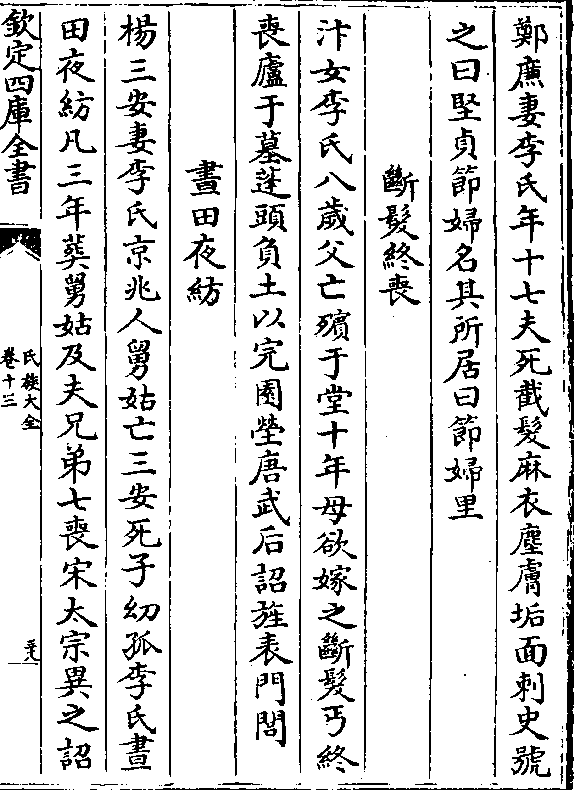 鄭廉妻李氏年十七夫死截髮麻衣塵膚垢面刺史號
之曰堅貞節婦名其所居曰節婦里
斷髮終喪
汴女李氏八歲父亡殯于堂十年母欲嫁之斷髮丐終
喪廬于墓蓬頭負土以完園塋唐武后詔旌表門閭
晝田夜紡
楊三安妻李氏京兆人舅姑亡三安死子幼孤李氏晝
田夜紡凡三年葬舅姑及夫兄弟七喪宋太宗異之詔
欽定四庫全書
氏族大全
卷十三